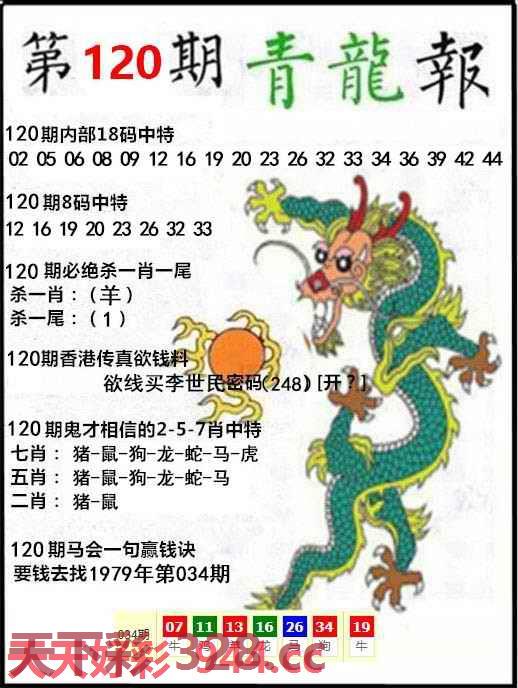 第120期青龍報
120期内部18码中特
02 05 06 08 09 12 16 19 20 23 26 32 33 34 36 39 42 44
120期8码中特
12 16 19 20 23 26 32 33
120期必绝杀一肖一尾
杀一肖：(羊)
杀一尾：(1)
120期香港传真欲钱料
欲线买李世民密码(248)[开?]
120期鬼才相信的2-5-7肖中特
七肖：猪-鼠-狗-龙-蛇-马-虎
五肖：猪-鼠-狗-龙-蛇-马
二肖：猪-鼠
120期马会一句赢钱诀
要钱去找1979年第034期
034期 07 11 13 16 26 34 19
牛 鸡 羊 龙 马 狗 牛
天天好彩